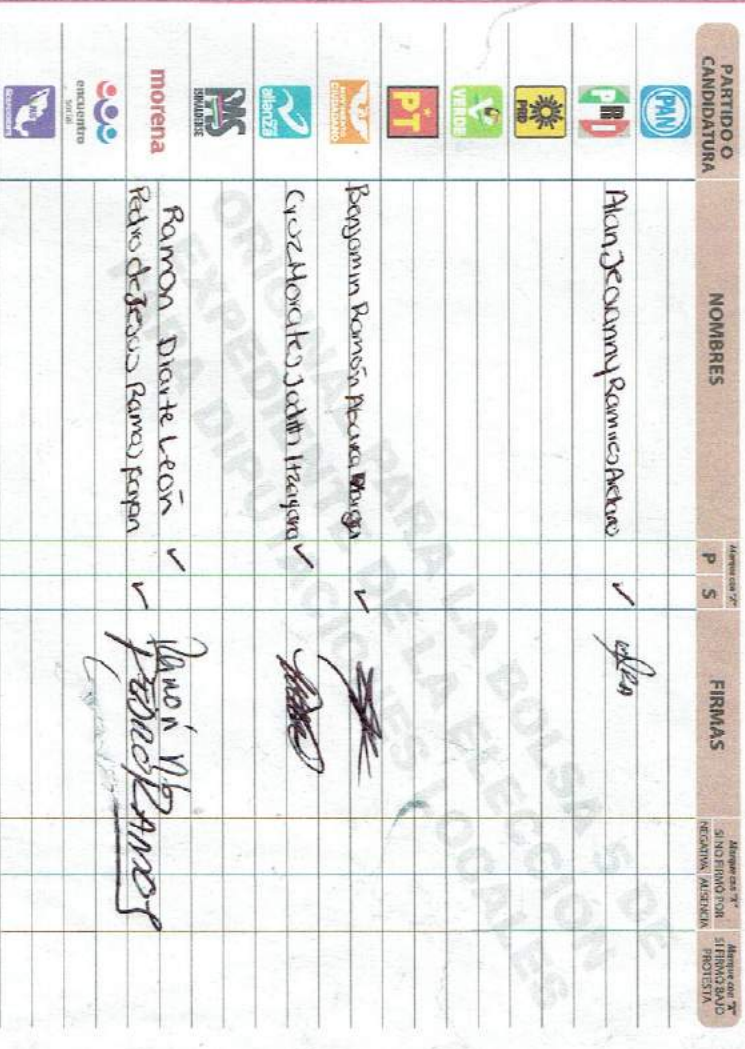 PARTIDO O CANDIDATURA
NOMBRES
Marque con "X"
P S
FIRMAS
Marque con "X" SI NO FIRMÓ POR
NEGATIVA AUSENCIA
Marque con "X" SI FIRMÓ BAJO PROTESTA
PAN
PRI
Alan Jeovanny Ramirez ✓
PRD
VERDE
PT
MOVIMIENTO CIUDADANO
Benjamin Ramón ✓
alianza
Cruz Morales Judith Itzayana ✓
PAS
SINALOENSE
morena
Ramon Diarte León ✓ Ramón
Pedro de Jesus Ramos ✓ PEDRO RAMOS
encuentro
social
ORIGINAL PARA LA BOLSA 5 DE
EXPEDIENTE DE LA ELECCIÓN
PARA DIPUTACIONES LOCALES